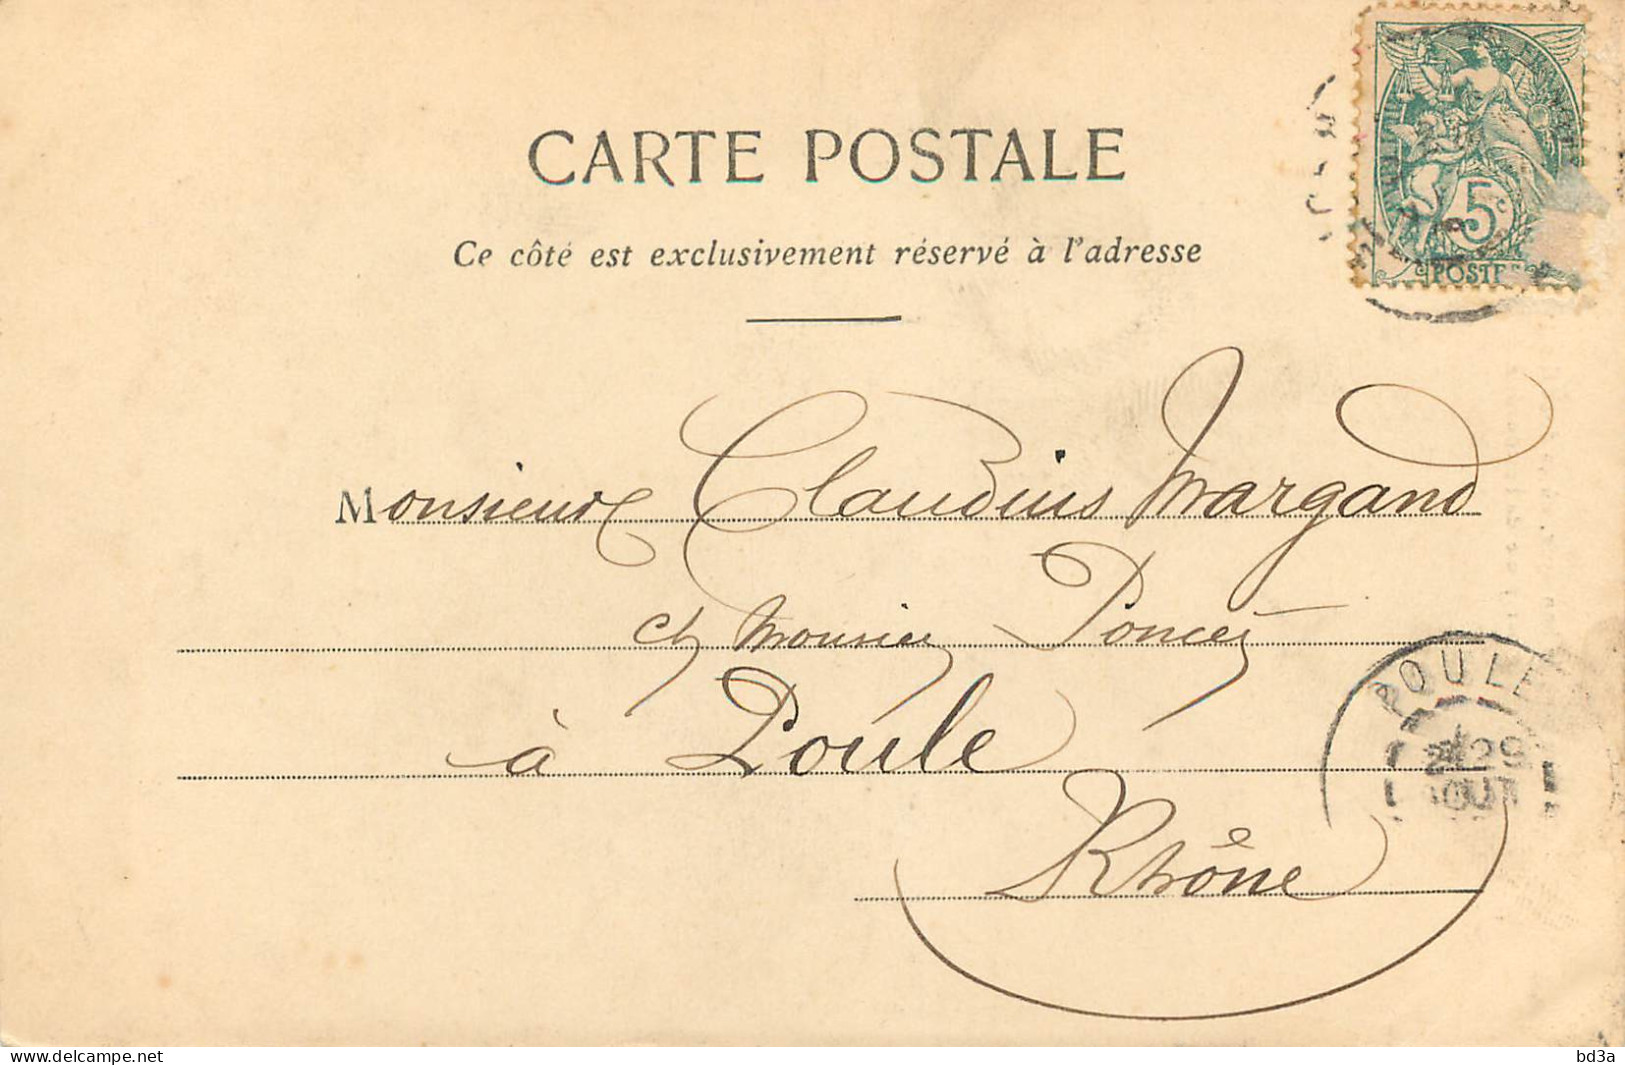 CARTE POSTALE
Ce côté est exclusivement réservé à l'adresse
5c
POSTE
Monsieur Claudius Margand
ch Monsieur Poncet
à Poule
Rhône
POULE
29
AOUT
www.delcampe.net
bd3a